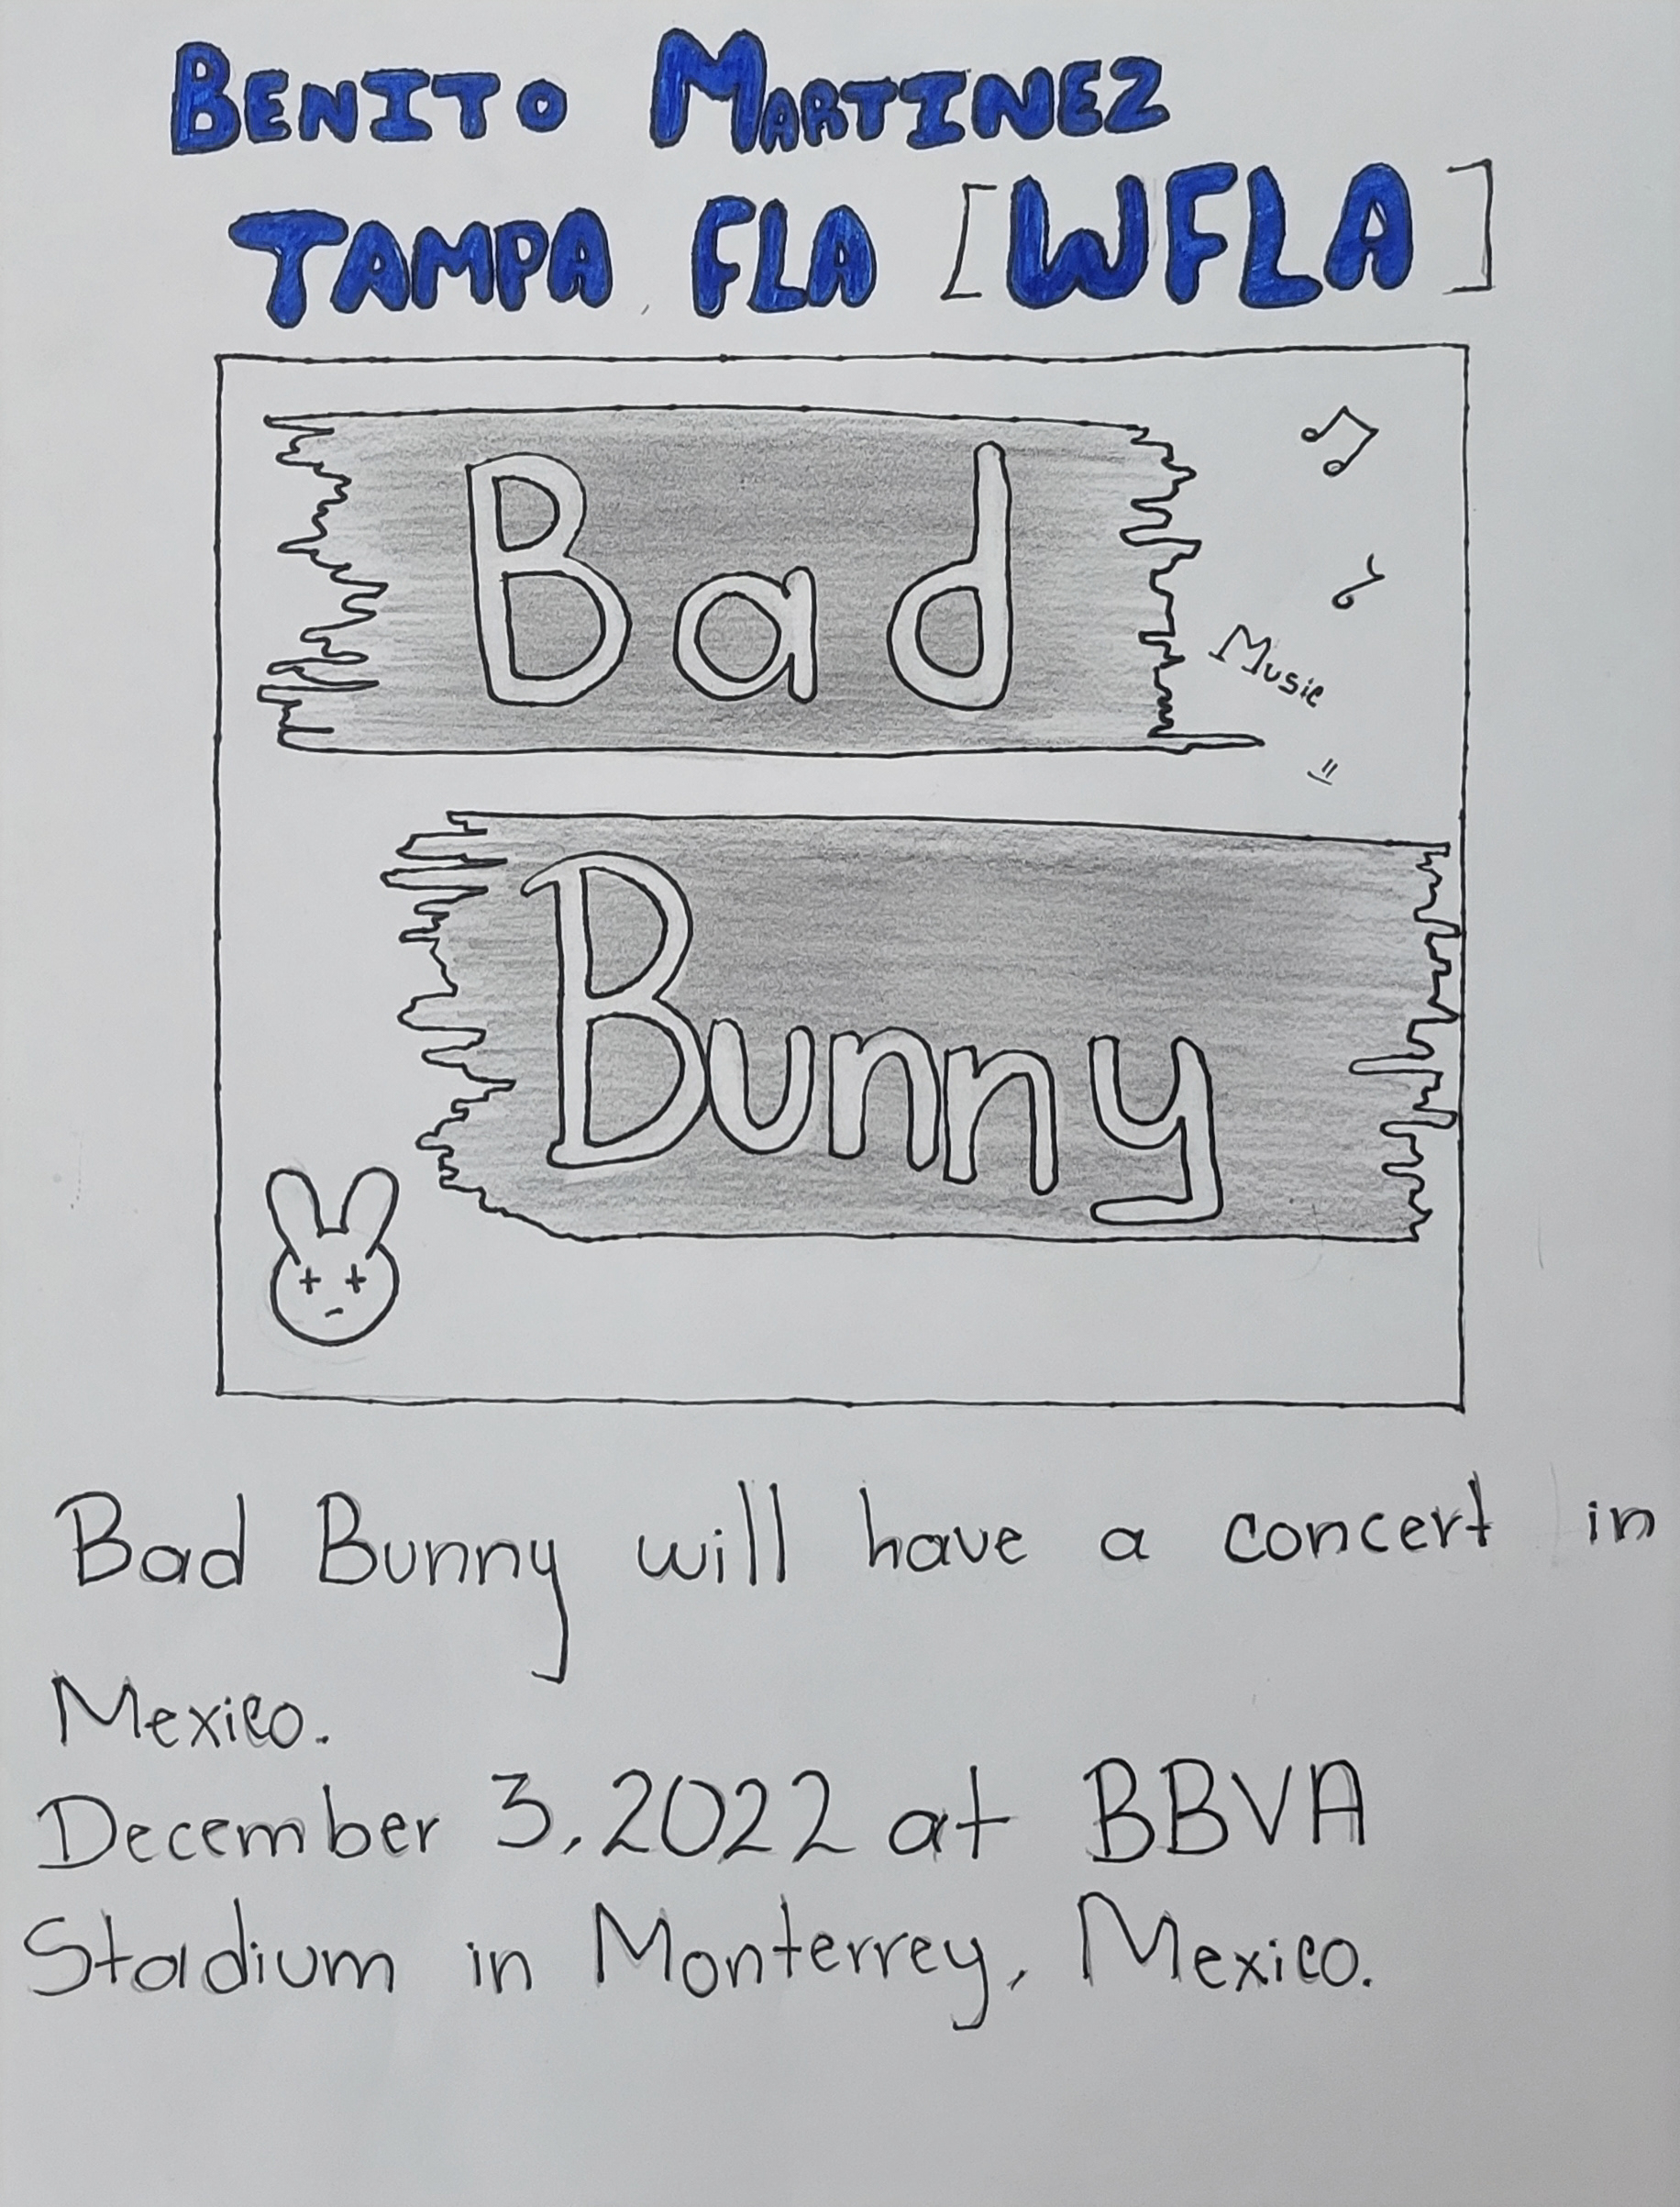 BENITO MARTINEZ
TAMPA FLA [WFLA]
Bad
Music
Bunny
Bad Bunny will have a concert in
Mexico.
December 3, 2022 at BBVA
Stadium in Monterrey, Mexico.